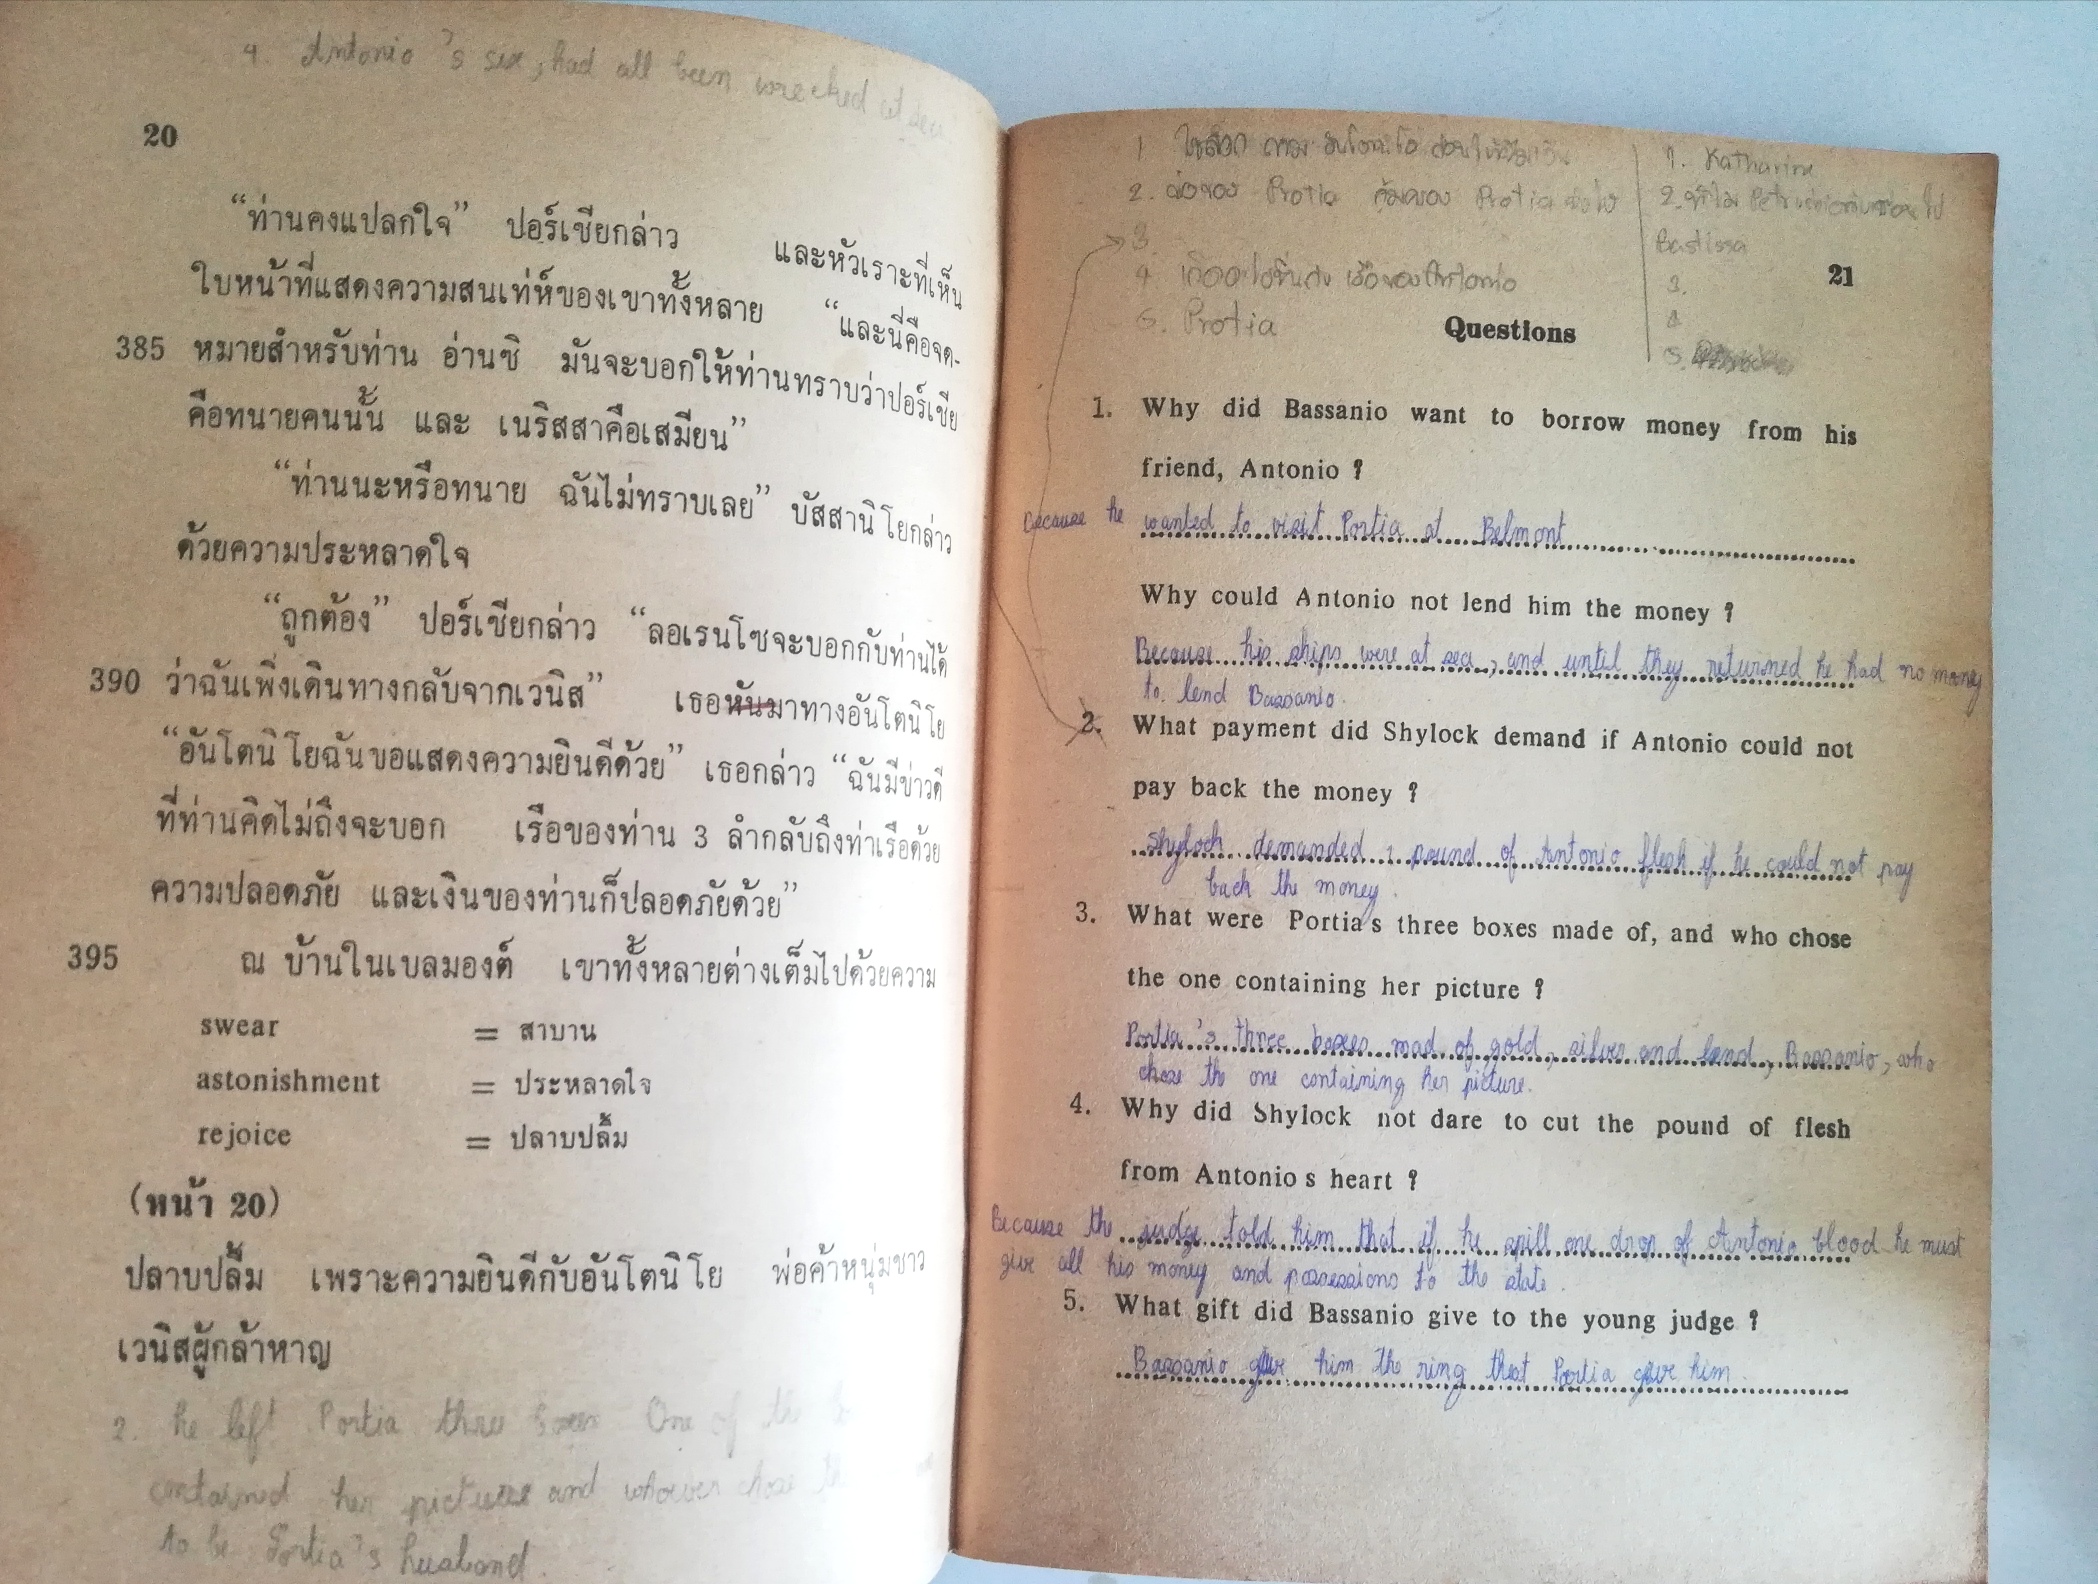 4. Antonio's sex, had all been wrecked at sea
20
“ท่านคงแปลกใจ” ปอร์เชียกล่าว และหัวเราะที่เห็น
ใบหน้าที่แสดงความสนเท่ห์ของเขาทั้งหลาย “และนี่คือจด-
385 หมายสำหรับท่าน อ่านซิ มันจะบอกให้ท่านทราบว่าปอร์เชีย
คือทนายคนนั้น และ เนริสสาคือเสมียน”
“ท่านนะหรือทนาย ฉันไม่ทราบเลย” บัสสานิโยกล่าว
ด้วยความประหลาดใจ
“ถูกต้อง” ปอร์เชียกล่าว “ลอเรนโซจะบอกกับท่านได้
390 ว่าฉันเพิ่งเดินทางกลับจากเวนิส” เธอหันมาทางอันโตนิโย
“อันโตนิโยฉันขอแสดงความยินดีด้วย” เธอกล่าว “ฉันมีข่าวดี
ที่ท่านคิดไม่ถึงจะบอก เรือของท่าน 3 ลำกลับถึงท่าเรือด้วย
ความปลอดภัย และเงินของท่านก็ปลอดภัยด้วย”
395 ณ บ้านในเบลมองต์ เขาทั้งหลายต่างเต็มไปด้วยความ
swear = สาบาน
astonishment = ประหลาดใจ
rejoice = ปลาบปลื้ม
(หน้า 20)
ปลาบปลื้ม เพราะความยินดีกับอันโตนิโย พ่อค้าหนุ่มชาว
เวนิสผู้กล้าหาญ
2. he left Portia three boxes One of the
contained her picture and whoever chose
to be Portia's husband.
1
2. พ่อของ Protia Protia
3
4
5. Protia
1. Katharina
2.
3.
4
5.
21
Questions
1. Why did Bassanio want to borrow money from his
friend, Antonio ?
Because he wanted to visit Portia at Belmont
Why could Antonio not lend him the money ?
Because his ships were at sea, and until they returned he had no money
to lend Bassanio.
2. What payment did Shylock demand if Antonio could not
pay back the money ?
Shylock demanded 1 pound of Antonio flesh if he could not pay
back the money.
3. What were Portia's three boxes made of, and who chose
the one containing her picture ?
Portia's three boxes mad of gold, silver and lend, Bassanio, who
chose the one containing her picture.
4. Why did Shylock not dare to cut the pound of flesh
from Antonio s heart ?
Because the judge told him that if he spill one drop of Antonio blood he must
give all his money and possessions to the state.
5. What gift did Bassanio give to the young judge ?
Bassanio gave him the ring that Portia gave him.